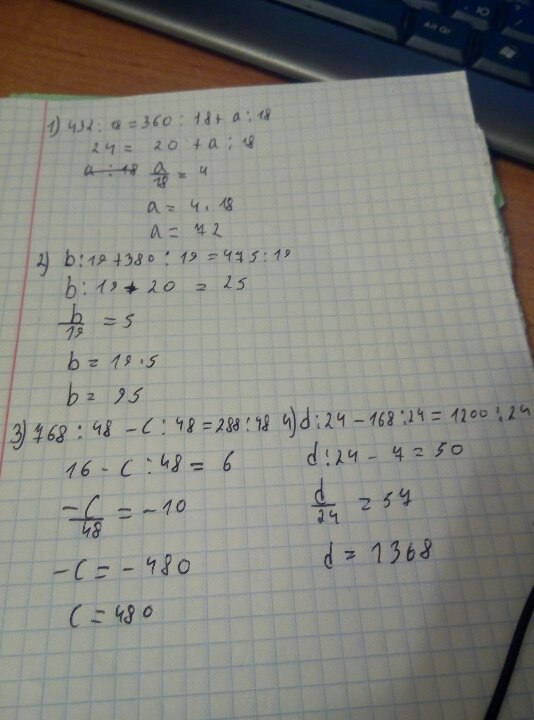 Ю
Alt Gr
1) 432 : 18 = 360 : 18 + a : 18
24 = 20 + a : 18
a : 18 a/18 = 4
a = 4 . 18
a = 72
2) b : 19 + 380 : 19 = 475 : 19
b : 19 + 20 = 25
b/19 = 5
b = 19 . 5
b = 95
3) 768 : 48 - C : 48 = 288 : 48
16 - C : 48 = 6
-C/48 = -10
-C = -480
C = 480
4) d : 24 - 168 : 24 = 1200 : 24
d : 24 - 7 = 50
d/24 = 57
d = 1368